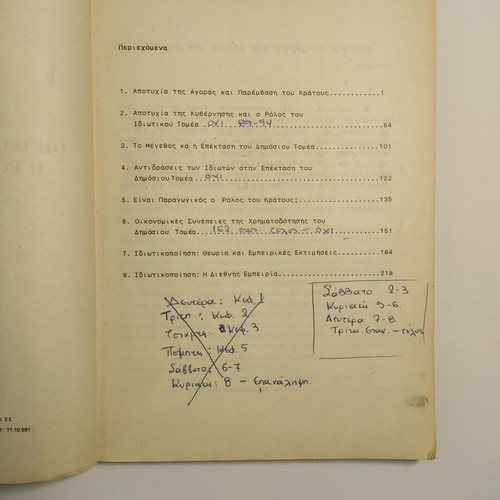 Περιεχόμενα
1. Αποτυχία της Αγοράς και Παρέμβαση του Κράτους............1
2. Αποτυχία της Κυβέρνησης και ο Ρόλος του
Ιδιωτικού Τομέα όχι 89-94 64
3. Το Μέγεθος κα η Επέκταση του Δημόσιου Τομέα..............101
4. Αντιδράσεις των Ιδιωτών στην Επέκταση του
Δημόσιου Τομέα όχι 122
5. Είναι Παραγωγικός ο Ρόλος του Κράτους;..................135
6. Οικονομικές Συνέπειες της Χρηματοδότησης του
Δημόσιου Τομέα 162 τέλος - όχι 151
7. Ιδιωτικοποίηση: Θεωρία και Εμπειρικές Εκτιμήσεις.........184
8. Ιδιωτικοποίηση: Η Διεθνής Εμπειρία......................218
Δευτέρα: Κεφ. 1
Τρίτη: Κεφ. 2
Τετάρτη: Κεφ. 3
Πέμπτη: Κεφ. 5
Σάββατο: 6-7
Κυριακή: 8 - Επανάληψη.
Σάββατο 2-3
Κυριακή 5-6.
Δευτέρα 7-8.
Τρίτη Επαν. - τέλος
Α Ε.Ε.
77.10.581